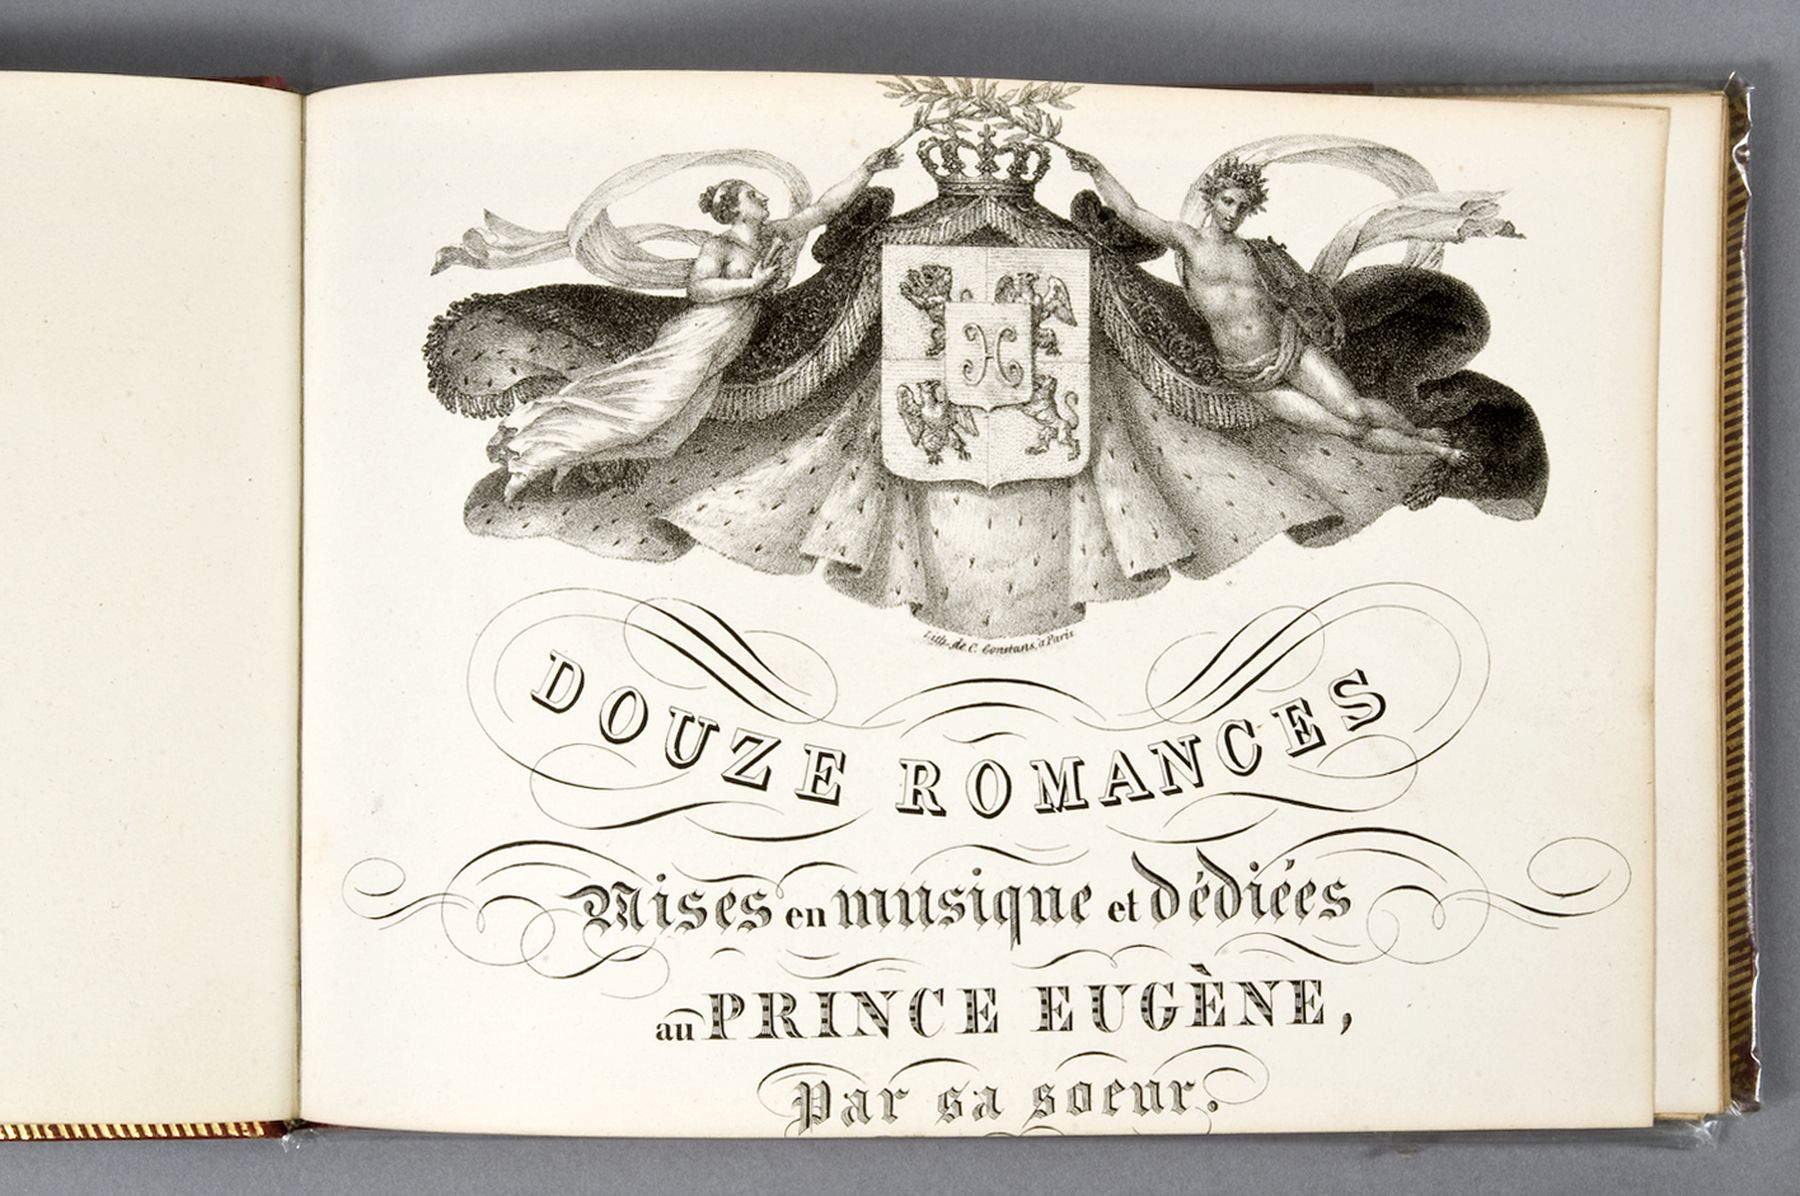 Lith. de C. Constans, à Paris
DOUZE ROMANCES
Mises en musique et dédiées
au PRINCE EUGÈNE,
Par sa soeur.